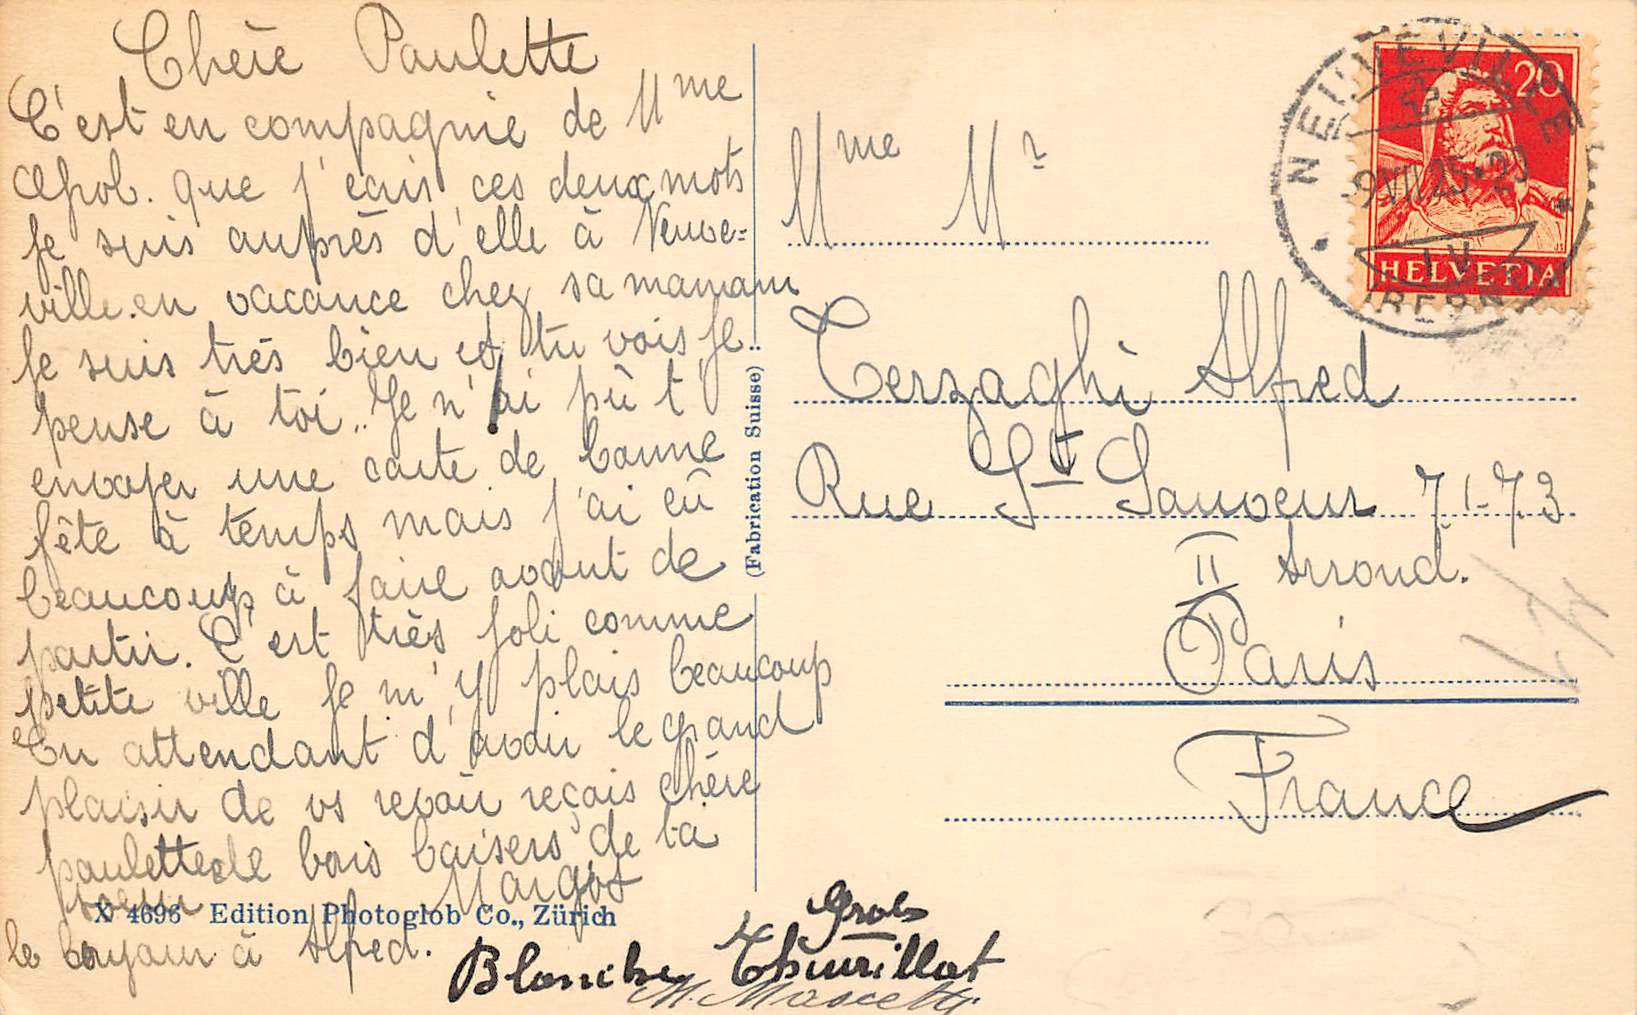 Chère Paulette
C'est en compagnie de Mme
que j'ecris ces deux mots
Je suis auprès d'elle à Neuve=
ville en vacance chez sa maman
Je suis très bien et tu vois je
pense à toi.. Je n'ai pû t'
envoyer une carte de bonne
fête à temps mais j'ai eû
beaucoup à faire avant de
partir. C'est très joli comme
petite ville je m'y plais beaucoup
En attendant d'avoir le grand
plaisir de vs revoir reçois chère
paulette de bons baisers de ta
soeur Margot
le bonjour à Alfred.
X 4696 Edition Photoglob Co., Zürich
(Fabrication Suisse)
Mme Mr
Terzaghi Alfred
Rue St Sauveur 71-73
II Arrond.
Paris
France
Blanche Thurillat
NEUVEVILLE
9.VII.25
(BERN)
20
HELVETIA